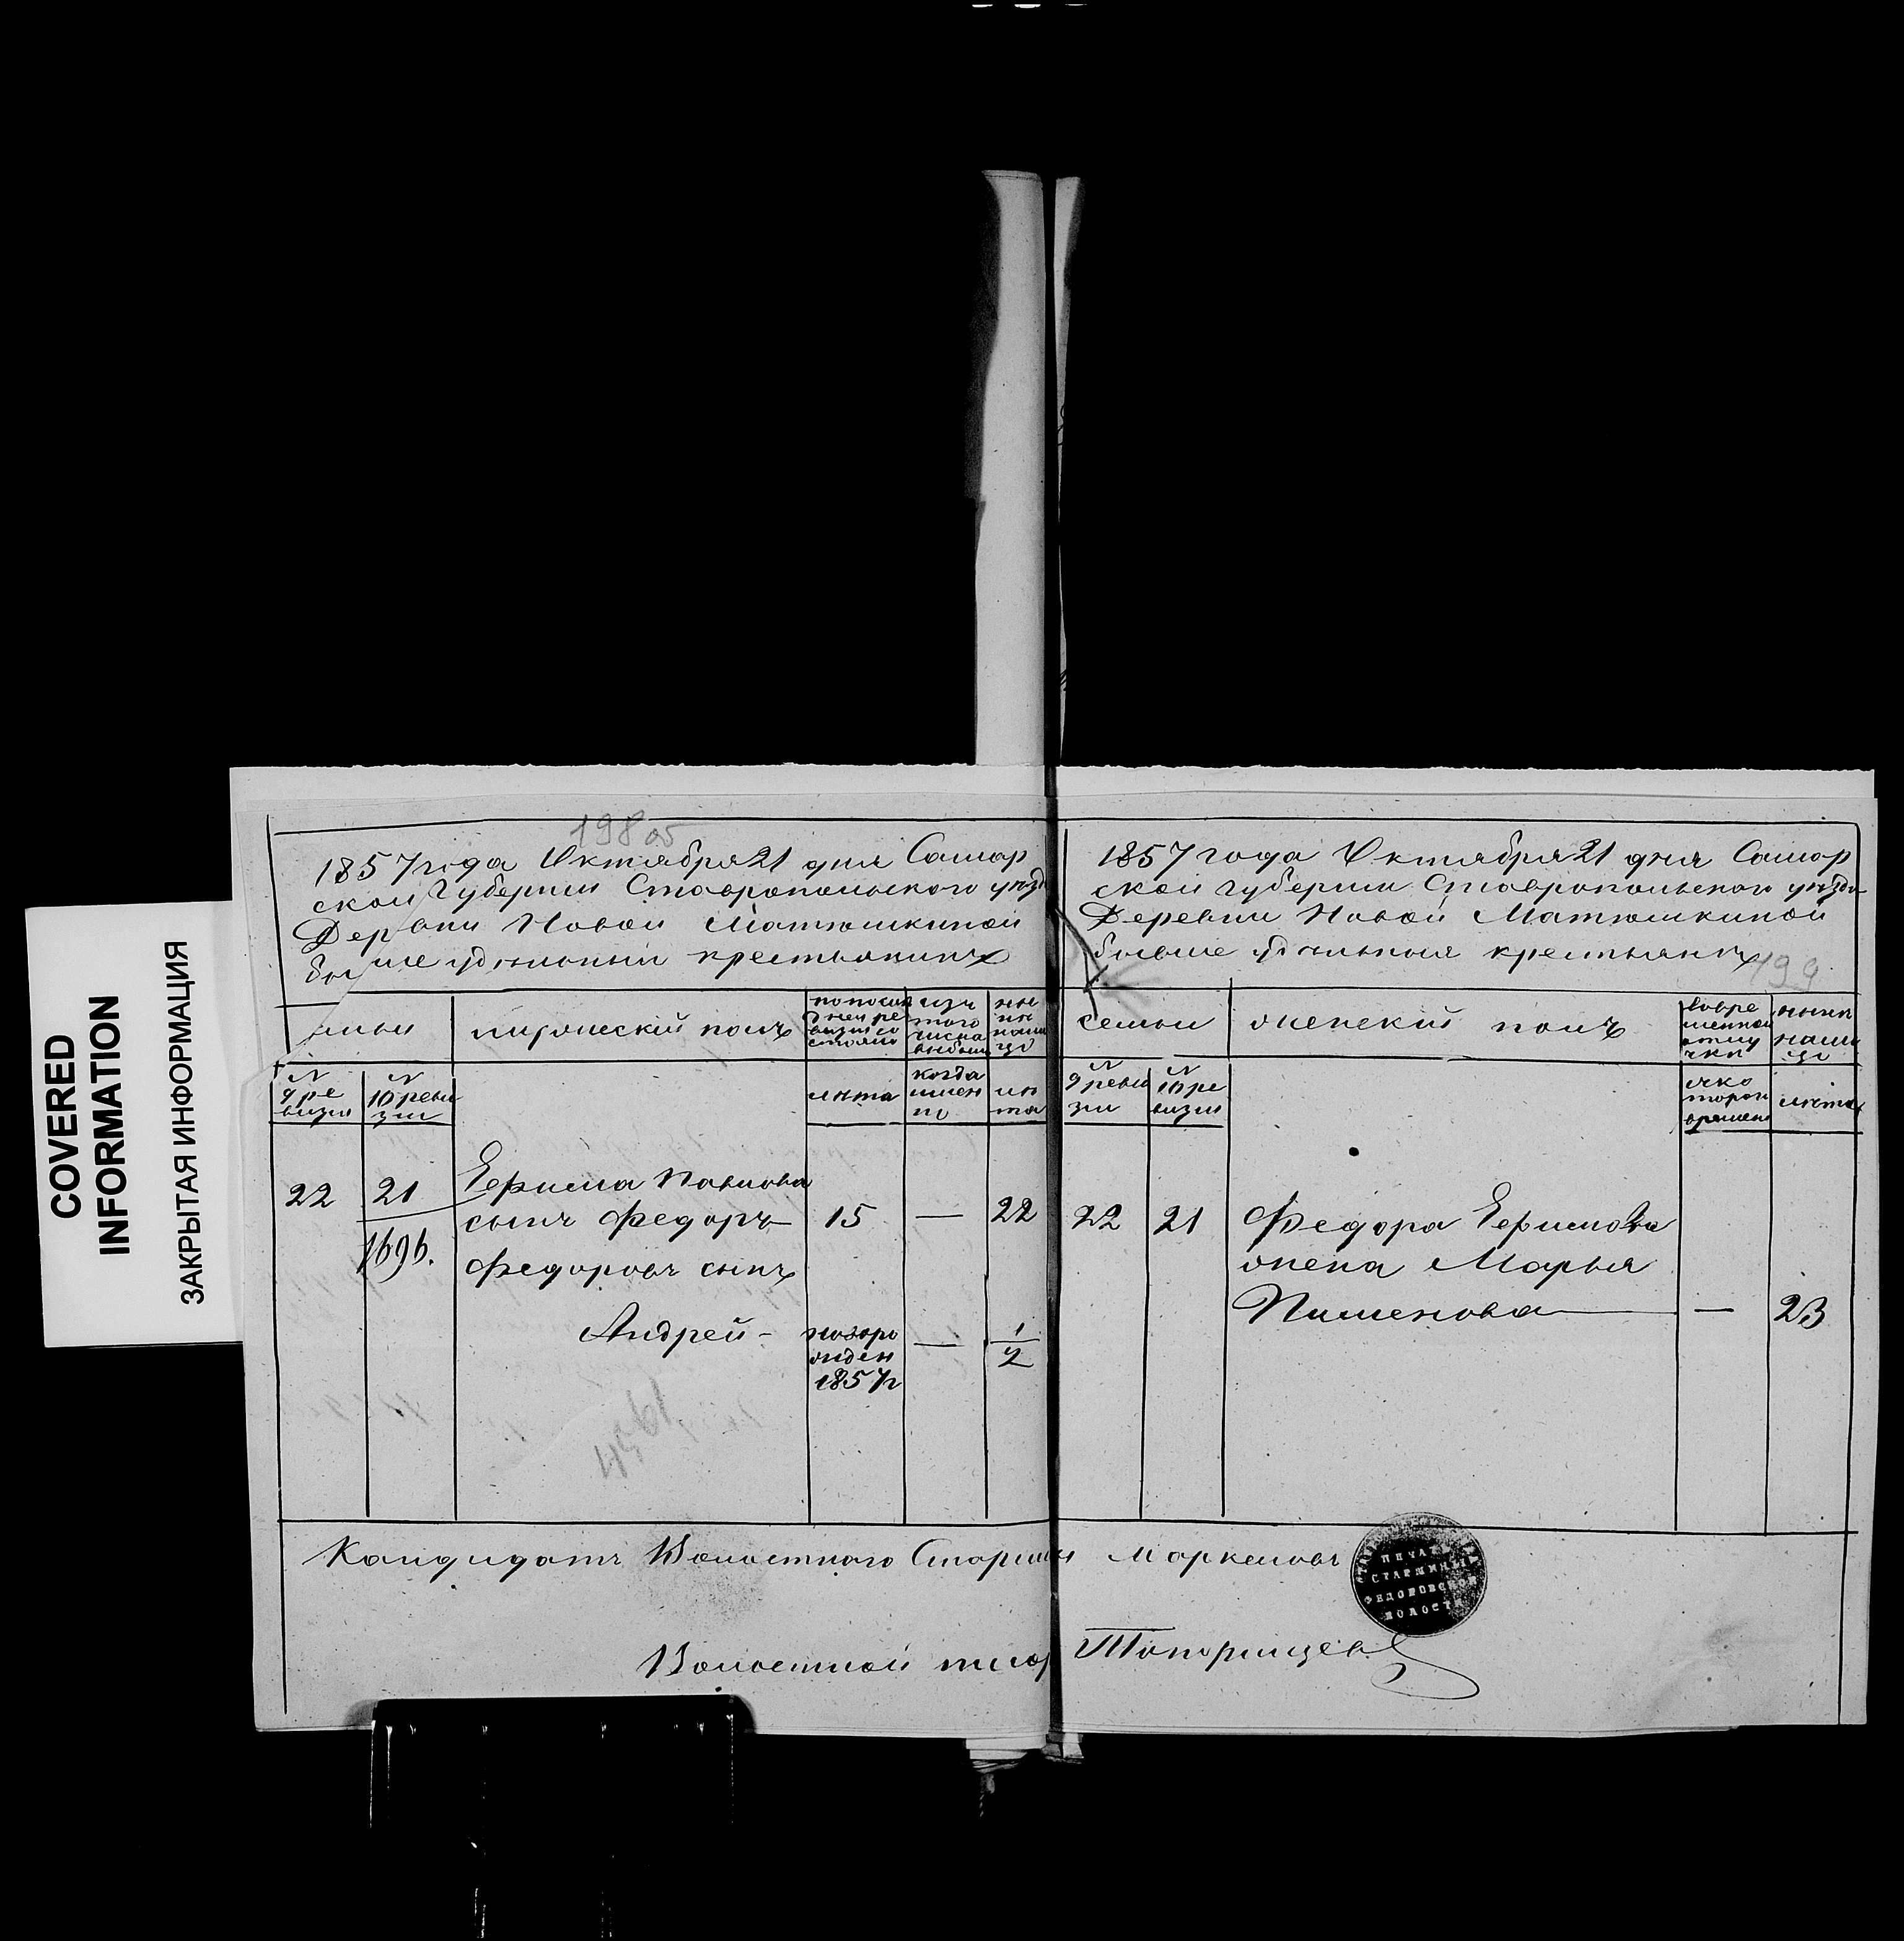 COVERED
INFORMATION
ЗАКРЫТАЯ ИНФОРМАЦИЯ
198 об
1857 года Октября 21 дня Самар
ской Губернии Ставропольского уезд
Дер вни Новой Матюшкиной
бы шие удельный крестьянинъ
мьи
мужеский полъ
по послѣ
дней ре
визіи со
стояло
изъ
того
числа
выбыло
ны
нѣ
налі
цо
№
9 ре
визіи
№
10 реви
зіи
лѣта
когда
имен
но
лѣ
та
22
21
1696.
Ефима Павлова
сынъ Федоръ
15
—
22
Федоровъ сынъ
Андрей -
новоро
жден
1857 г
—
1/2
1857 года Октября 21 дня Самар
ской губернии Ставропольского уѣзда
Деревни Новой Матюшкиной
бывшие удѣльныя крестьянъ
199
семьи
женский полъ
вовре
менной
отлу
чкѣ
нынѣ
нали
цо
№
9 реви
зіи
№
10 ре
визіи
ско
торог
времени
лѣта
22
21
Федора Ефимова
жена Марья
Пименова
—
23
Кандидатъ Волостного Старшин Маркеловъ
ПЕЧАТ
СТАРШИНЫ
ФЕДОРОВСКОЙ
ВОЛОСТИ
Волостной писар Топорищев